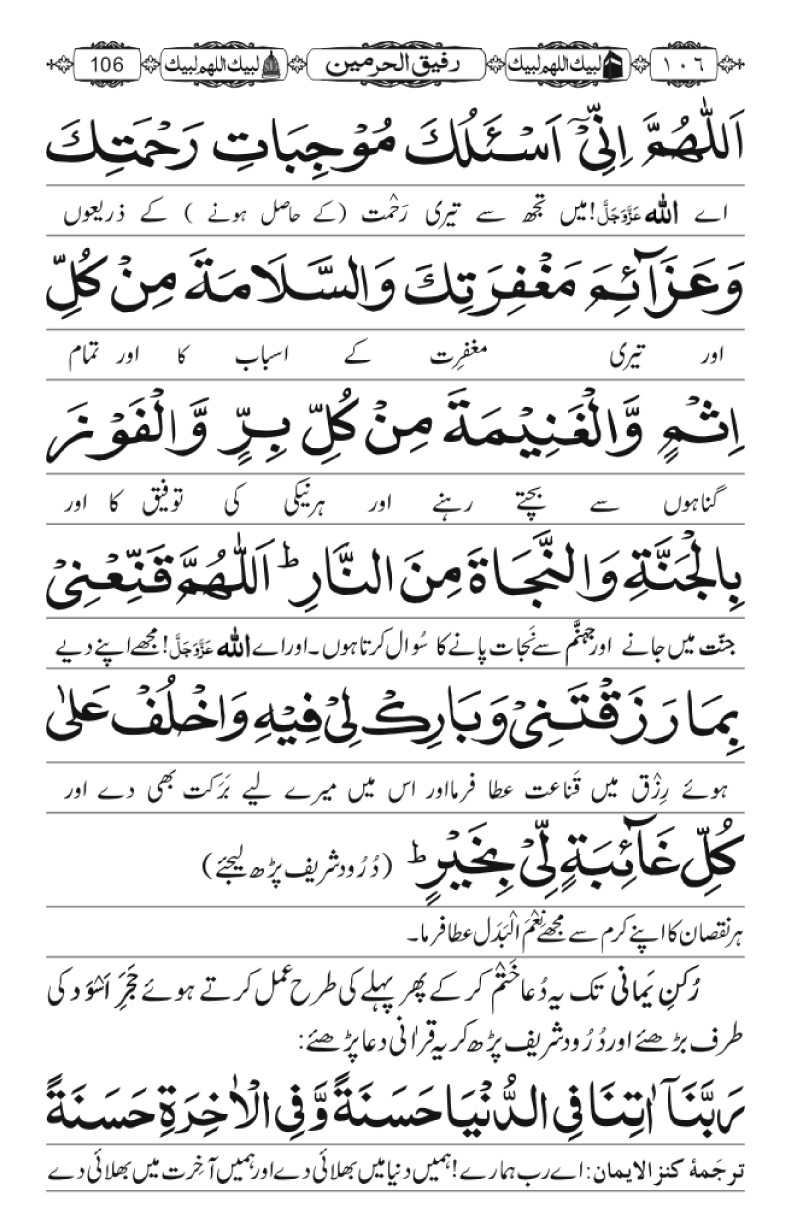 ١٠٦ لبيك اللهم لبيك رفیق الحرمین لبيك اللهم لبيك 106
اَللّٰهُمَّ اِنِّیْۤ اَسْئَلُكَ مُوْجِبَاتِ رَحْمَتِكَ
اے اللہ عَزَّوَجَلَّ! میں تجھ سے تیری رَحْمت (کے حاصل ہونے ) کے ذریعوں
وَعَزَآئِمَ مَغْفِرَتِكَ وَالسَّلَامَةَ مِنْ كُلِّ
اور تیری مغفِرت کے اسباب کا اور تمام
اِثْمٍ وَّالْغَنِيْمَةَ مِنْ كُلِّ بِرٍّ وَّالْفَوْزَ
گناہوں سے بچتے رہنے اور ہرنیکی کی توفیق کا اور
بِالْجَنَّةِ وَالنَّجَاةَ مِنَ النَّارِ ؕ اَللّٰهُمَّ قَنِّعْنِیْ
جنّت میں جانے اور جہنَّم سے نَجات پانے کا سُوال کرتا ہوں۔ اور اے اللہ عَزَّوَجَلَّ! مجھے اپنے دیے
بِمَا رَزَقْتَنِیْ وَبَارِكْ لِیْ فِيْهِ وَاخْلُفْ عَلٰی
ہوئے رِزْق میں قَناعت عطا فرما اور اس میں میرے لیے بَرَکت بھی دے اور
كُلِّ غَآئِبَةٍ لِّیْ بِخَيْرٍ ؕ (دُرُود شریف پڑھ لیجئے)
ہر نقصان کا اپنے کرم سے مجھے نِعْمَ الْبَدَل عطا فرما۔
رُکنِ یَمانی تک یہ دُعا خَتْم کر کے پھر پہلے کی طرح عمل کرتے ہوئے حَجَرِ اَسْوَد کی
طرف بڑھئے اور دُرُود شریف پڑھ کر یہ قراٰنی دعا پڑھئے:
رَبَّنَاۤ اٰتِنَا فِی الدُّنْيَا حَسَنَةً وَّ فِی الْاٰخِرَةِ حَسَنَةً
ترجَمۂ کنز الایمان: اے رب ہمارے! ہمیں دنیا میں بھلائی دے اور ہمیں آخِرت میں بھلائی دے